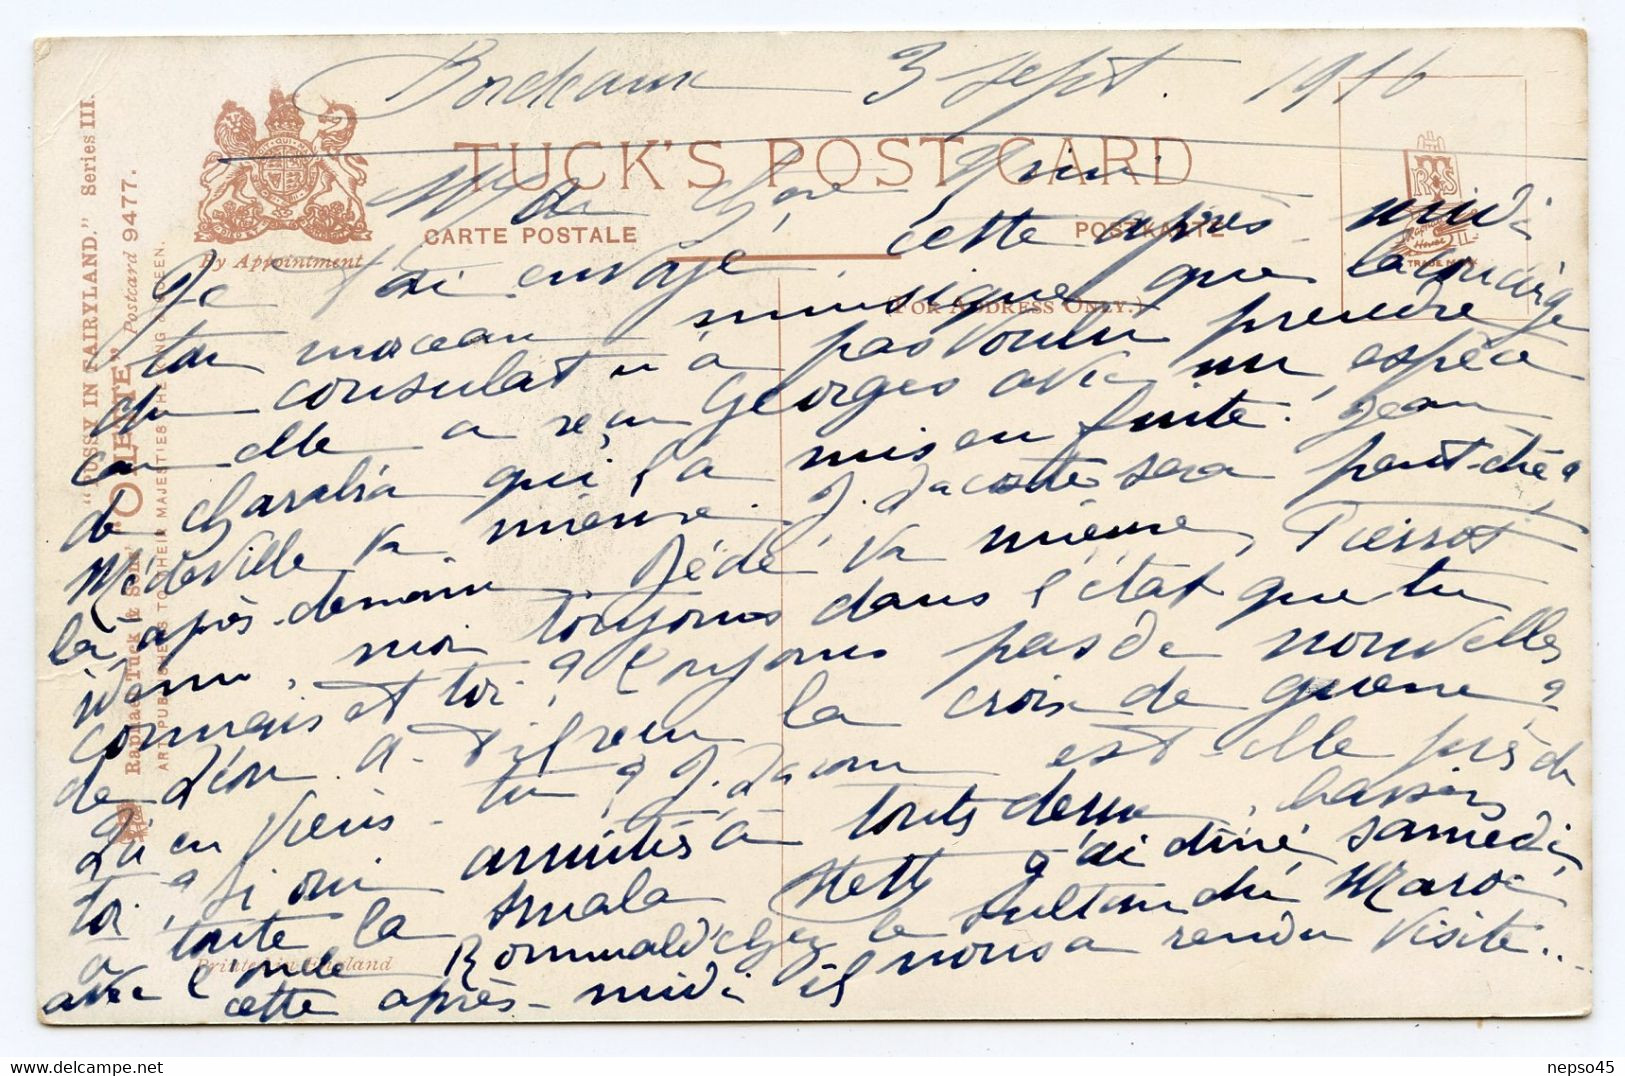 Bordeaux 3 Sept. 1916
TUCK'S POST CARD
CARTE POSTALE
POSTKARTE
By Appointment
(FOR ADDRESS ONLY.)
TRADE MARK
"PUSSY IN FAIRYLAND." Series III.
"OILETTE" Postcard 9477.
Raphael Tuck & Sons'
ART PUBLISHERS TO THEIR MAJESTIES THE KING & QUEEN.
Printed in England
Ma chère Mimi
Je t'ai envoyé cette après-midi
ton morceau musique que la concierge
du consulat n'a pas voulu prendre
car elle a reçu Georges avec un espèce
de charabia qui l'a mis en fuite. Jean
Médeville va mieux. J. Lacoste sera peut-être
là après-demain. Dédé va mieux, Pierrot
idem, moi toujours dans l'état que tu
connais et toi? Toujours pas de nouvelles
de Léon. A-t-il reçu la croix de guerre?
Qu'en dis-tu? J. est-elle près de
toi? Si oui amitiés à toutes deux, baisers
à toute la smala Hetty J'ai dîné samedi
avec l'oncle Romuald chez le sultan du Maroc
cette après-midi il nous a rendu visite...
nepso45